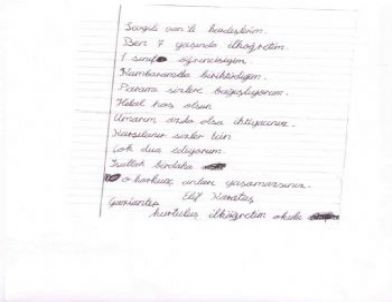 Sevgili van'lı kardeşlerim.
Ben 7 yaşında ilköğretim.
1 sınıf öğrencisiyim.
Kumbaramda biriktirdiğim.
Paramı sizlere bağışlıyorum.
Helal hoş olsun
Umarım azda olsa ihtiyacınız.
Karşılanır sizler için
Çok dua ediyorum.
İnşallah birdaha
o korkunç anları yaşamazsınız.
Elif Karataş
Gaziantep
kurtuluş ilköğretim okulu